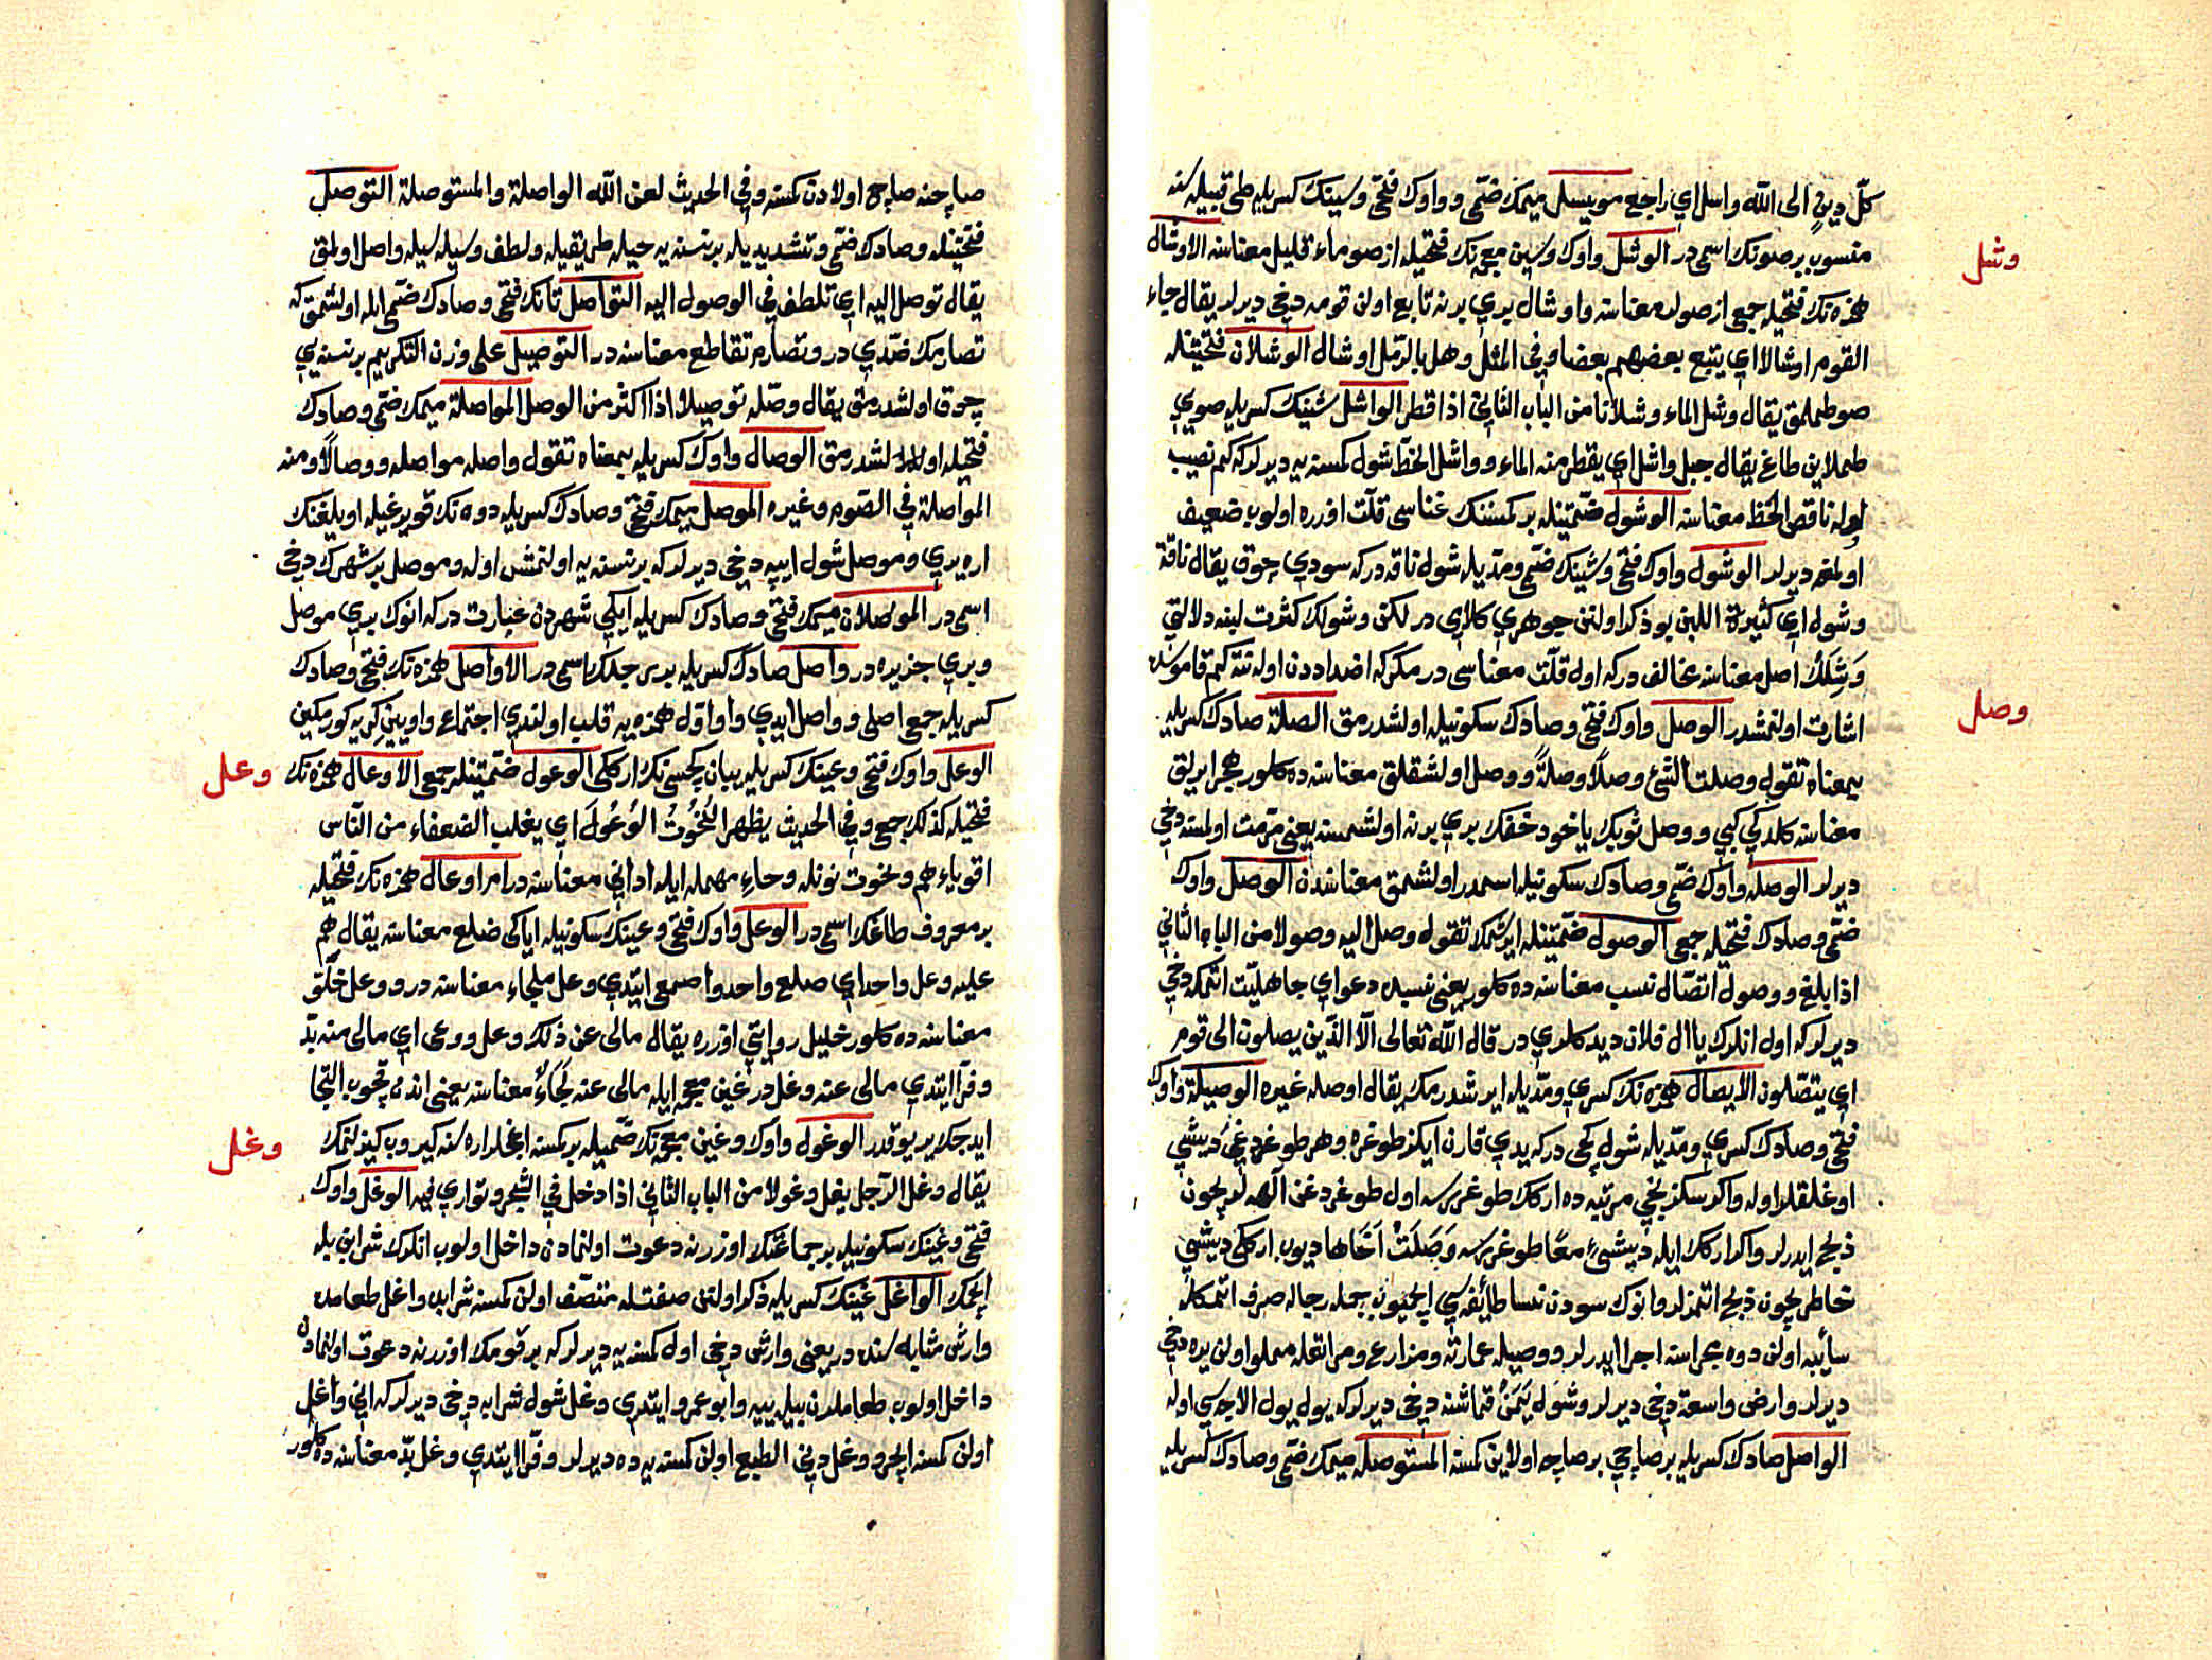 كلّ دينٍ الى الله واسل اي راجع مويسل ميمك ضمّى وواوك فتحى وسينك كسريله طى قبيله سنه
وشل
منسوب بر صونك اسمى در الوشل واوك وشين معجمه نك فتحيله از صو ماء قليل معناسنه الاوشال
همزه نك فتحيله جمع از صولر معناسنه واوشال بري برنه تابع اولن قومه دخى ديرلر يقال جاء
القوم اوشالا اي يتبع بعضهم بعضا وفي المثل وهل بالرّمل اوشال الوشلان فتحتينله
صو طملمق يقال وشل الماء وشلانا من الباب الثاني اذا قطر الواشل شينك كسريله صويي
طملاين طاغ يقال جبل واشل اي يقطر منه الماء وواشل الحظّ شول كمسنه يه ديرلر كه كم نصيب
اوله ناقص الحظّ معناسنه الوشول ضمّتينله بر كمسنك غناسى قلّت اوزره اولوب ضعيف
اولمغه ديرلر الوشول واوك فتحى وشينك ضمّى ومدّيله شول ناقه در كه سودي چوق يقال ناقة
وشول اي كثيرة اللبن بو ذكر اولنن جوهري كلامي در لكن وشولك كثرت لبنه دلالتى
وَشِلَك اصل معناسنه مخالف در كه اول قلّت معناسى در مكر كه اضداددن اوله نته كم قاموسده
وصل
اشارت اولنمشدر الوصل واوك فتحى وصادك سكونيله اولشدرمق الصلة صادك كسريله
بمعناه تقول وصلت الشئ وصلًا وصلةً ووصل اولشقلق معناسنه ده كلور هجر ايرلق
معناسنه كلدكي كبي ووصل ثوبك ياخود خفّك بري برنه اولشمسنه يعنى مرمّت اولمسنه دخي
ديرلر الوصله واوك ضمّى وصادك سكونيله اسمدر اولشمق معناسندن الوصل واوك
ضمّى وصادك فتحيله جمع الوصول ضمّتينله ايرشمك تقول وصل اليه وصولا من الباب الثاني
اذا بلغ ووصول اتصّال نسب معناسنه ده كلور يعنى نسبله دعواي جاهليّت اتمكه دخي
ديرلر كه اول انلرك يا ال فلان ديدكلري در قال الله تعالى الّا الذّين يصلون الى قوم
اي يتصّلون الايصال همزه نك كسري ومدّيله ايرشدرمك يقال اوصله غيره الوصيلة واوك
فتحى وصادك كسري ومدّيله شول كچى در كه يدي قارن ايكز طوغره وهر طوغردغى ديشي
اوغلقلر اوله واكر سكزنجى مرتبه ده اركك طوغررسه اول طوغردغن آلهه لر ايچون
ذبح ايدرلر واكر اركك ايله ديشيء معًا طوغررسه وَصَلَتْ اَخَاها ديوب اركى ديشي
خاطر يچون ذبح اتمزلر وانوك سودن نسا طائفه سي ايچميوب جمله رجاله صرف اتمكله
سائبه اولن دوه مجراسنه اجرا ايدرلر ووصيله عمارته ومزارع ومراتعله مملو اولن يره دخي
ديرلر وارض واسعة دخي ديرلر وشول يَمَنُ قماشنه دخي ديرلر كه يول يول الاجه سي اوله
الواصل صادك كسريله بر صاچي بر صاچه اولاين كمسنه المستوصله ميمك ضمّى وصادك كسريله
صاچنه صاچ اولادن كمسنه وفي الحديث لعن الله الواصلة والمستوصلة التوصل
فتحتينله وصادك ضمّى وتشديديله بر نسنه يه حيله طريقيله ولطف وسيله سيله واصل اولمق
يقال توصل اليه اي تلطف في الوصول اليه التواصل تانك فتحى وصادك ضمّى ايله اولشمق كه
تصارمك ضدّي در وتصارم تقاطع معناسنه در التوصيل على وزن التكريم بر نسنه يي
چوق اولشدرمق يقال وصّله توصيلا اذا اكثر من الوصل المواصلة ميمك ضمّى وصادك
فتحيله اولشدرمق الوصال واوك كسريله بمعناه تقول واصله مواصله ووصالًا ومنه
المواصلة في الصّوم وغيره الموصل ميمك فتحى وصادك كسريله دوه نك قويرغيله اويلغنك
اره يري وموصل شول ايپه دخي ديرلر كه بر نسنه يه اولنمش اوله وموصل بر شهرك دخي
اسمى در الموصلان ميمك فتحى وصادك كسريله ايكي شهردن عبارت در كه انوك بري موصل
وبري جزيره در واصل صادك كسريله برسى جلك اسمى در الاواصل همزه نك فتحى وصادك
كسريله جمع اصلى وواصل ايدي واو اوّل همزه يه قلب اولندي اجتماع واوين كريه كورمكين
وعل
الوعل واوك فتحى وعينك كسريله يبان كچسى نك اركى الوعول ضمّتينله جمع الاوعال همزه نك
فتحيله كذلك جمع وفي الحديث يظهر التُخُوتُ الوُعُولَ اي يغلب الضعفاء من النّاس
اقوياءهم ونخوت نونله وحاءِ مهمله ايله اداني معناسنه در امر اوعال همزه نك فتحيله
بر معروف طاغك اسمى در الوعل واوك فتحى وعينك سكونيله اياكى ضلع معناسنه يقال هم
عليه وعل واحد اي ضلع واحد واصمعى ايتدي وعل ملجاء معناسنه در ووعل خلّق
معناسنه ده كلور خليل روايتى اوزره يقال مالى عن ذلك وعل ووعى اي مالى منه بدّ
وفرّا ايتدي مالى عنه وغل در غين معجمه ايله مالى عنه لجاءٌ معناسنه يعنى اندن قچوب التجا
وغل
ايدجك ير يوقدر الوغول واوك وغين معجمه نك ضمّيله بر كمسنه اغچلر اره سنه كيروب كيزلنمك
يقال وغل الرّجل يغل وغولا من الباب الثاني اذا دخل في الشّجر وتواري فيه الوغل واوك
فتحى وغينك سكونيله بر جماعتك اوزرنه دعوت اولنمادن داخل اولوب انلرك شرابن بله
ايچمك الواغل غينك كسريله ذكر اولنن صفتله متصّف اولن كمسنه شرابده واغل طعامده
وارش مثابه سنده در يعنى وارش دخى اول كمسنه يه ديرلر كه بر قومك اوزرنه دعوت اولنمادن
داخل اولوب طعاملرن بيله ييه وابو عمرو ايتدي وغل شول شرابه دخى ديرلر كه انى واغل
اولن كمسنه ايچر ووغل دنى الطبع اولن كمسنه يه ده ديرلر وفرّا ايتدي وغل بدّ معناسنه ده كلور